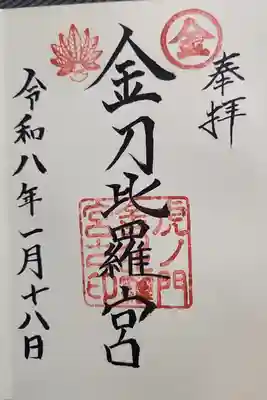 奉拝
金
金刀比羅宮
虎ノ門
金刀比羅
宮之印
令和八年一月十八日